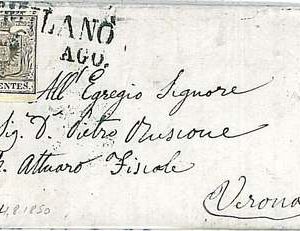 LANO
AGO.
ENTES
All' Egregio Signore
Sig. D. Pietro
Attuaro Fiscale
Verona
8 1850